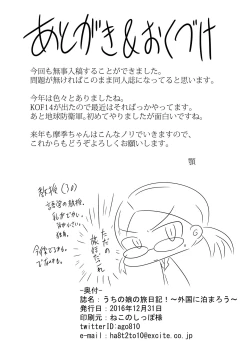 あとがき&おくづけ
今回も無事入稿することができました。
問題が無ければこのまま同人誌になってると思います。
今年は色々とありましたね。
KOF14が出たので最近はそればっかやってます。
あと地球防衛軍。初めてやりましたが面白いですね。
来年も摩季ちゃんはこんなノリでいきますので、
これからもどうぞよろしくお願いします。
顎
教授(30)
ただの
旅行だれ
-奥付-
誌名:うちの娘の旅日記!~外国に泊まろう~
発行日:2016年12月31日
印刷元:ねこのしっぽ様
twitterID:ago810
e-mail:ha8t2to10@excite.co.jp